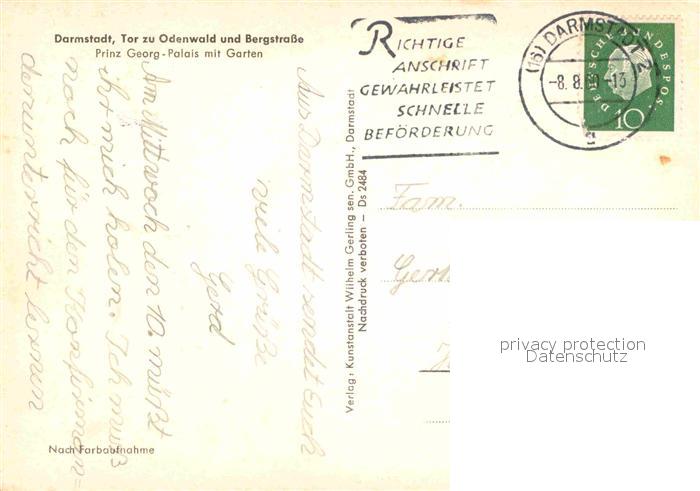 Darmstadt, Tor zu Odenwald und Bergstraße
Prinz Georg-Palais mit Garten
RICHTIGE
ANSCHRIFT
GEWÄHRLEISTET
SCHNELLE
BEFÖRDERUNG
(16) DARMSTADT 2
-8.8.60-13
DEUTSCHE BUNDESPOST
10
Aus Darmstadt sendet Euch
viele Grüße
Gerd
Am Mittwoch den 10. müßt
ihr mich holen. Ich muß
noch für den Konfirman=
denunterricht lernen
Verlag: Kunstanstalt Wilhelm Gerling sen. GmbH., Darmstadt
Nachdruck verboten — Ds 2484
Fam.
privacy protection
Datenschutz
Nach Farbaufnahme